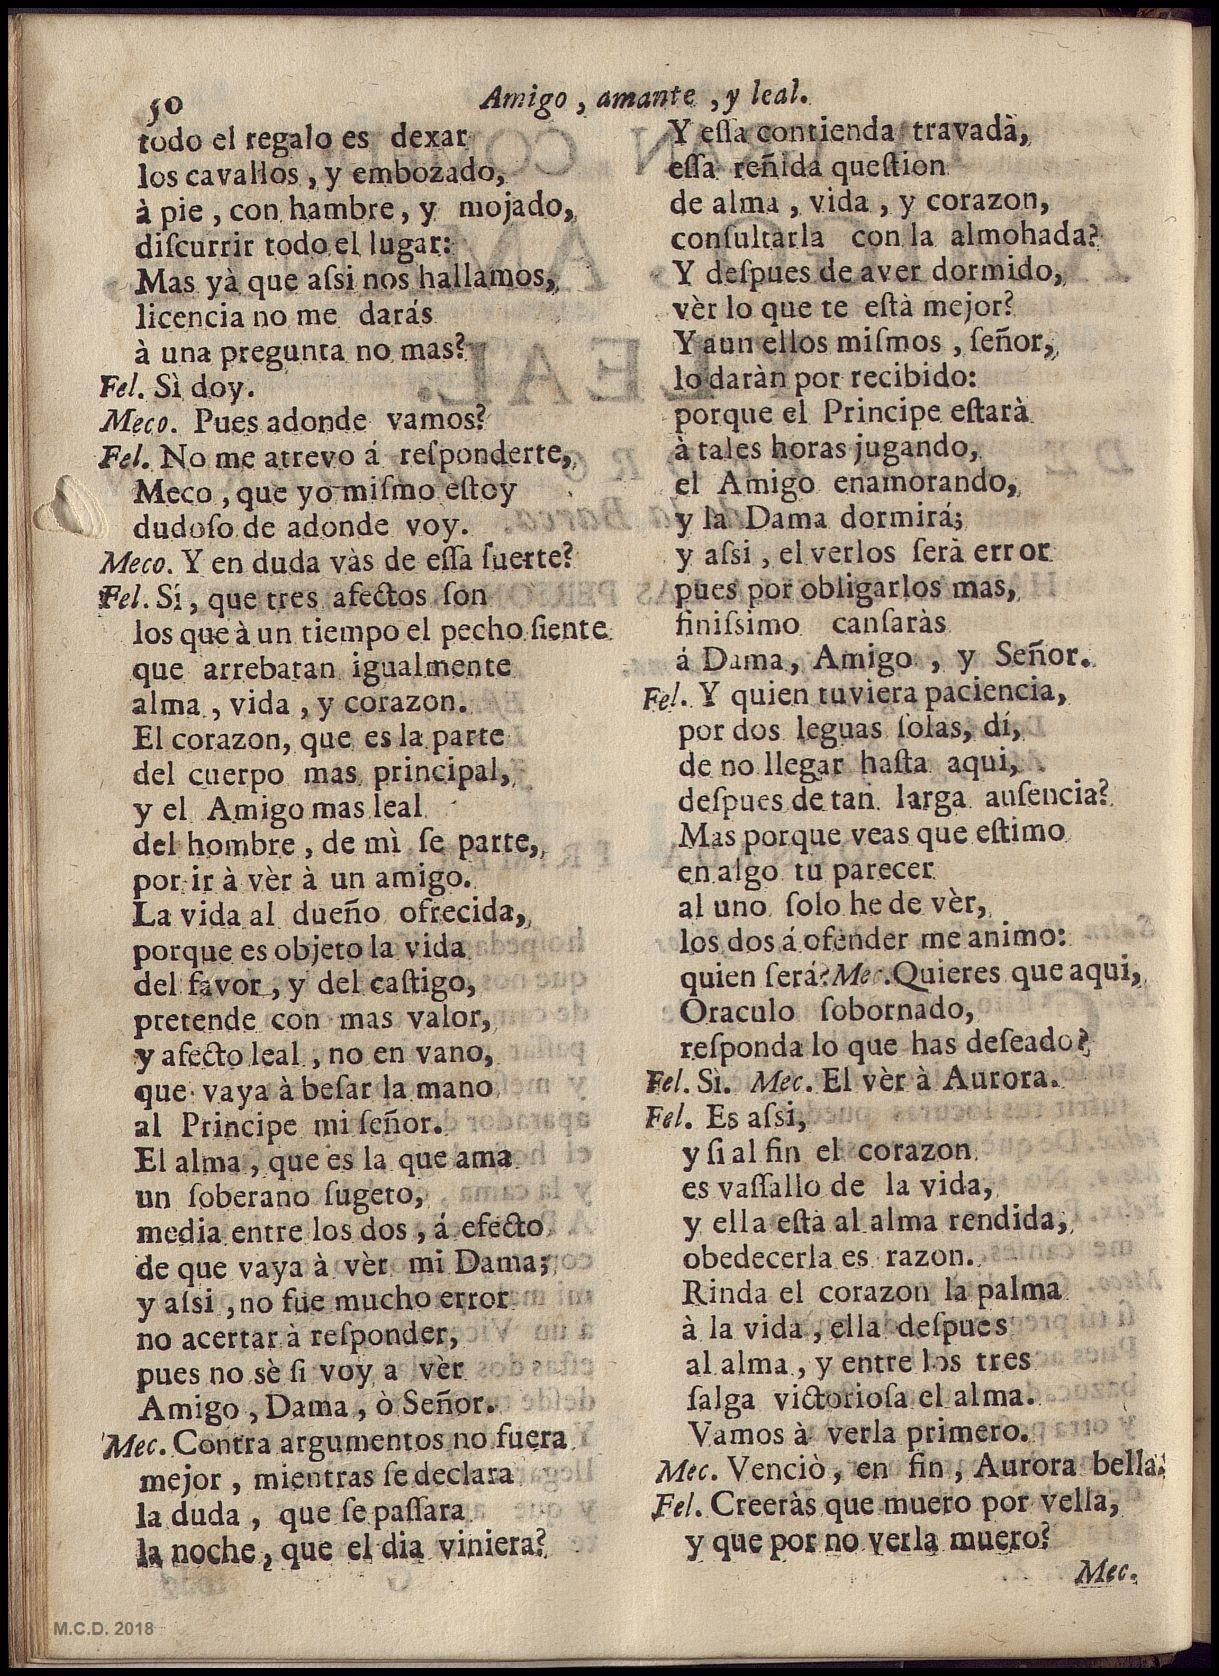 50
Amigo, amante, y leal.
todo el regalo es dexar
los cavallos, y embozado,
à pie, con hambre, y mojado,
diſcurrir todo el lugar:
Mas yà que aſsi nos hallamos,
licencia no me darás
à una pregunta no mas?
Fel. Sì doy.
Meco. Pues adonde vamos?
Fel. No me atrevo á reſponderte,
Meco, que yo miſmo eſtoy
dudoſo de adonde voy.
Meco. Y en duda vàs de eſſa ſuerte?
Fel. Sí, que tres afectos ſon
los que à un tiempo el pecho ſiente
que arrebatan igualmente
alma, vida, y corazon.
El corazon, que es la parte
del cuerpo mas principal,
y el Amigo mas leal
del hombre, de mì ſe parte,
por ir à vèr à un amigo.
La vida al dueño ofrecida,
porque es objeto la vida
del favor, y del caſtigo,
pretende con mas valor,
y afecto leal, no en vano,
que vaya à beſar la mano
al Principe mi ſeñor.
El alma, que es la que ama
un ſoberano ſugeto,
media entre los dos, á efecto
de que vaya à vèr mi Dama;
y aſsi, no fue mucho error
no acertar à reſponder,
pues no sè ſi voy a vèr
Amigo, Dama, ò Señor.
Mec. Contra argumentos no fuera
mejor, mientras ſe declara
la duda, que ſe paſſara
la noche, que el dia viniera?
Y eſſa contienda travadà,
eſſa reñida queſtion
de alma, vida, y corazon,
conſultarla con la almohada?
Y deſpues de aver dormido,
vèr lo que te eſtà mejor?
Y aun ellos miſmos, ſeñor,
lo daràn por recibido:
porque el Principe eſtarà
à tales horas jugando,
el Amigo enamorando,
y la Dama dormirá;
y aſsi, el verlos ſerà error
pues por obligarlos mas,
finiſsimo canſaràs
á Dama, Amigo, y Señor.
Fel. Y quien tuviera paciencia,
por dos leguas ſolas, dí,
de no llegar haſta aqui,
deſpues de tan larga auſencia?
Mas porque veas que eſtimo
en algo tu parecer
al uno ſolo he de vèr,
los dos á ofender me animo:
quien ſerá? Mec. Quieres que aqui,
Oraculo ſobornado,
reſponda lo que has deſeado?
Fel. Sì. Mec. El vèr à Aurora.
Fel. Es aſsi,
y ſi al fin el corazon
es vaſſallo de la vida,
y ella eſtà al alma rendida,
obedecerla es razon.
Rinda el corazon la palma
à la vida, ella deſpues
al alma, y entre los tres
ſalga victorioſa el alma.
Vamos à verla primero.
Mec. Venciò, en fin, Aurora bella.
Fel. Creeràs que muero por vella,
y que por no verla muero?
Mec.
M.C.D. 2018